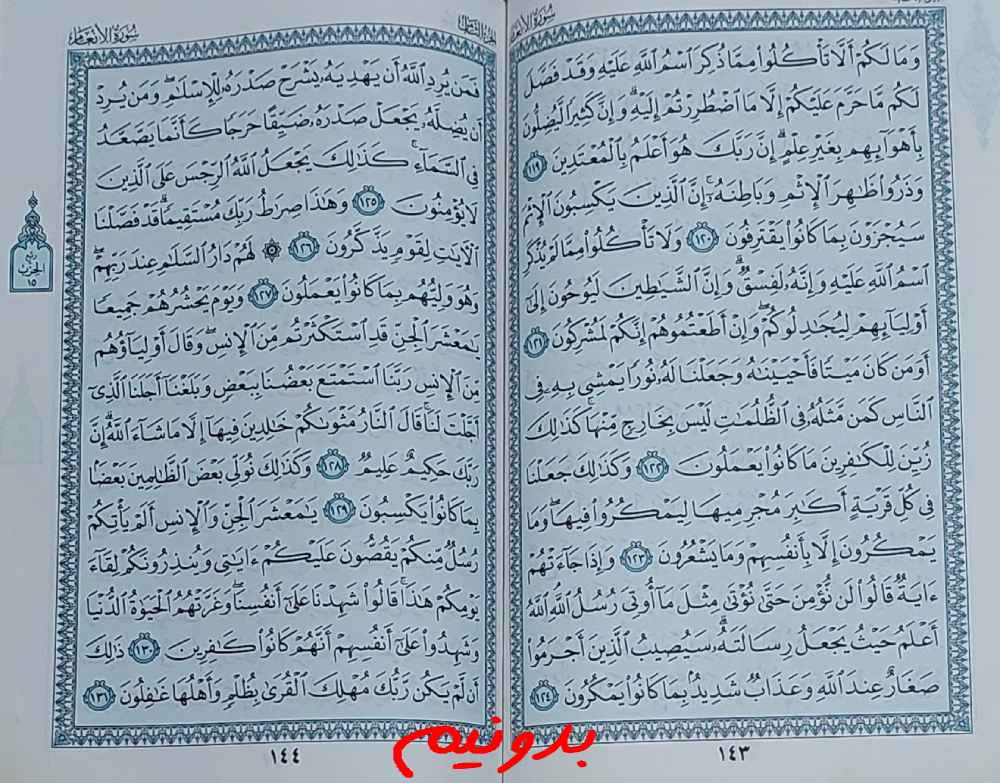 سُورَةُ الأَنْعَامِ
وَمَا لَكُمْ أَلَّا تَأْكُلُوا۟ مِمَّا ذُكِرَ ٱسْمُ ٱللَّهِ عَلَيْهِ وَقَدْ فَصَّلَ
لَكُم مَّا حَرَّمَ عَلَيْكُمْ إِلَّا مَا ٱضْطُرِرْتُمْ إِلَيْهِ ۗ وَإِنَّ كَثِيرًا لَّيُضِلُّونَ
بِأَهْوَآئِهِم بِغَيْرِ عِلْمٍ ۗ إِنَّ رَبَّكَ هُوَ أَعْلَمُ بِٱلْمُعْتَدِينَ ١١٩
وَذَرُوا۟ ظَٰهِرَ ٱلْإِثْمِ وَبَاطِنَهُۥٓ ۚ إِنَّ ٱلَّذِينَ يَكْسِبُونَ ٱلْإِثْمَ
سَيُجْزَوْنَ بِمَا كَانُوا۟ يَقْتَرِفُونَ ١٢٠ وَلَا تَأْكُلُوا۟ مِمَّا لَمْ يُذْكَرِ
ٱسْمُ ٱللَّهِ عَلَيْهِ وَإِنَّهُۥ لَفِسْقٌ ۗ وَإِنَّ ٱلشَّيَٰطِينَ لَيُوحُونَ إِلَىٰٓ
أَوْلِيَآئِهِمْ لِيُجَٰدِلُوكُمْ ۖ وَإِنْ أَطَعْتُمُوهُمْ إِنَّكُمْ لَمُشْرِكُونَ ١٢١
أَوَمَن كَانَ مَيْتًا فَأَحْيَيْنَٰهُ وَجَعَلْنَا لَهُۥ نُورًا يَمْشِى بِهِۦ فِى
ٱلنَّاسِ كَمَن مَّثَلُهُۥ فِى ٱلظُّلُمَٰتِ لَيْسَ بِخَارِجٍ مِّنْهَا ۚ كَذَٰلِكَ
زُيِّنَ لِلْكَٰفِرِينَ مَا كَانُوا۟ يَعْمَلُونَ ١٢٢ وَكَذَٰلِكَ جَعَلْنَا
فِى كُلِّ قَرْيَةٍ أَكَٰبِرَ مُجْرِمِيهَا لِيَمْكُرُوا۟ فِيهَا ۖ وَمَا
يَمْكُرُونَ إِلَّا بِأَنفُسِهِمْ وَمَا يَشْعُرُونَ ١٢٣ وَإِذَا جَآءَتْهُمْ
ءَايَةٌ قَالُوا۟ لَن نُّؤْمِنَ حَتَّىٰ نُؤْتَىٰ مِثْلَ مَآ أُوتِىَ رُسُلُ ٱللَّهِ ۘ ٱللَّهُ
أَعْلَمُ حَيْثُ يَجْعَلُ رِسَالَتَهُۥ ۗ سَيُصِيبُ ٱلَّذِينَ أَجْرَمُوا۟
صَغَارٌ عِندَ ٱللَّهِ وَعَذَابٌ شَدِيدٌۢ بِمَا كَانُوا۟ يَمْكُرُونَ ١٢٤
١٤٣
سُورَةُ الأَنْعَامِ
فَمَن يُرِدِ ٱللَّهُ أَن يَهْدِيَهُۥ يَشْرَحْ صَدْرَهُۥ لِلْإِسْلَٰمِ ۖ وَمَن يُرِدْ
أَن يُضِلَّهُۥ يَجْعَلْ صَدْرَهُۥ ضَيِّقًا حَرَجًا كَأَنَّمَا يَصَّعَّدُ
فِى ٱلسَّمَآءِ ۚ كَذَٰلِكَ يَجْعَلُ ٱللَّهُ ٱلرِّجْسَ عَلَى ٱلَّذِينَ
لَا يُؤْمِنُونَ ١٢٥ وَهَٰذَا صِرَٰطُ رَبِّكَ مُسْتَقِيمًا ۗ قَدْ فَصَّلْنَا
ٱلْءَايَٰتِ لِقَوْمٍ يَذَّكَّرُونَ ١٢٦ ۞ لَهُمْ دَارُ ٱلسَّلَٰمِ عِندَ رَبِّهِمْ ۖ
وَهُوَ وَلِيُّهُم بِمَا كَانُوا۟ يَعْمَلُونَ ١٢٧ وَيَوْمَ يَحْشُرُهُمْ جَمِيعًا
يَٰمَعْشَرَ ٱلْجِنِّ قَدِ ٱسْتَكْثَرْتُم مِّنَ ٱلْإِنسِ ۖ وَقَالَ أَوْلِيَآؤُهُم
مِّنَ ٱلْإِنسِ رَبَّنَا ٱسْتَمْتَعَ بَعْضُنَا بِبَعْضٍ وَبَلَغْنَآ أَجَلَنَا ٱلَّذِىٓ
أَجَّلْتَ لَنَا ۚ قَالَ ٱلنَّارُ مَثْوَىٰكُمْ خَٰلِدِينَ فِيهَآ إِلَّا مَا شَآءَ ٱللَّهُ ۗ إِنَّ
رَبَّكَ حَكِيمٌ عَلِيمٌ ١٢٨ وَكَذَٰلِكَ نُوَلِّى بَعْضَ ٱلظَّٰلِمِينَ بَعْضًۢا
بِمَا كَانُوا۟ يَكْسِبُونَ ١٢٩ يَٰمَعْشَرَ ٱلْجِنِّ وَٱلْإِنسِ أَلَمْ يَأْتِكُمْ
رُسُلٌ مِّنكُمْ يَقُصُّونَ عَلَيْكُمْ ءَايَٰتِى وَيُنذِرُونَكُمْ لِقَآءَ
يَوْمِكُمْ هَٰذَا ۚ قَالُوا۟ شَهِدْنَا عَلَىٰٓ أَنفُسِنَا ۖ وَغَرَّتْهُمُ ٱلْحَيَوٰةُ ٱلدُّنْيَا
وَشَهِدُوا۟ عَلَىٰٓ أَنفُسِهِمْ أَنَّهُمْ كَانُوا۟ كَٰفِرِينَ ١٣٠ ذَٰلِكَ
أَن لَّمْ يَكُن رَّبُّكَ مُهْلِكَ ٱلْقُرَىٰ بِظُلْمٍ وَأَهْلُهَا غَٰفِلُونَ ١٣١
١٤٤
ربع
الحزب
١٥
بدونیم